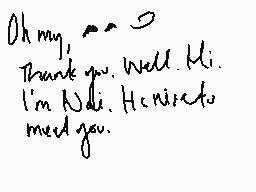 Oh my,
Thank you. Well. Hi.
I'm Nai. It's nice to
meet you.